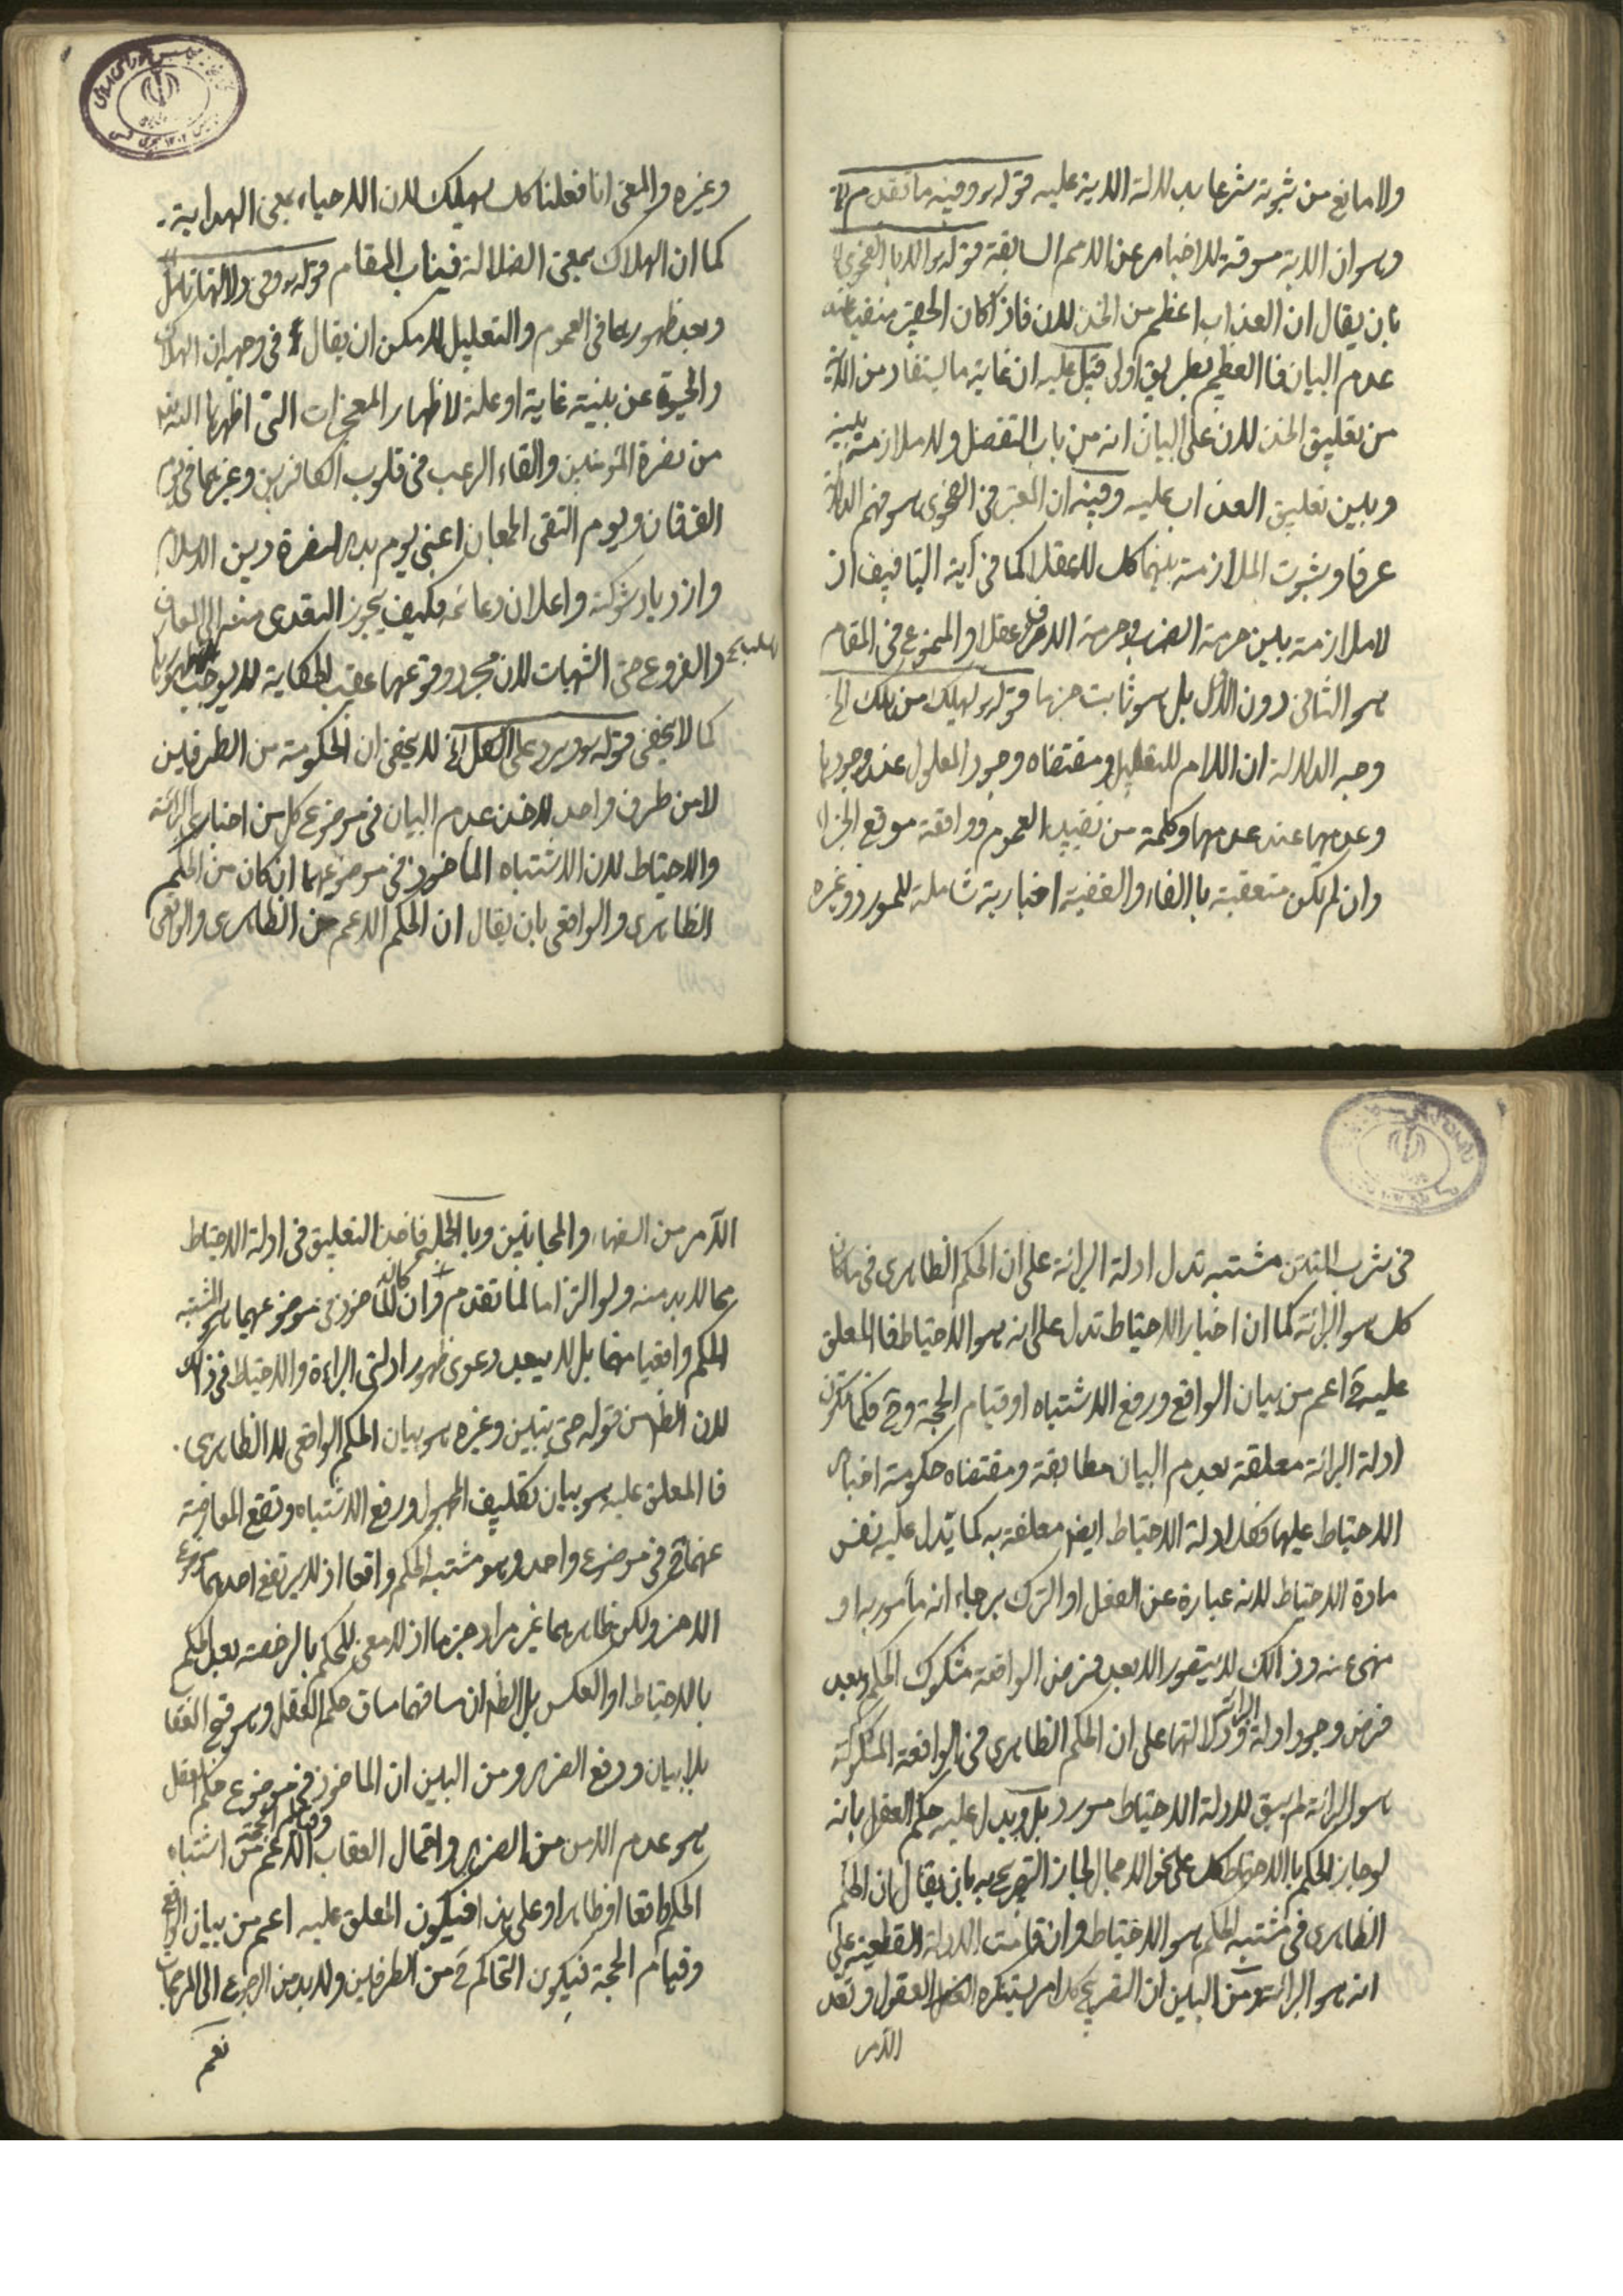 ولا مانع من ثبوته شرعا بدلالة الاية عليه قوله ره وفيه ما تقدم الخ
وهو ان الاية مسوقة للاخبار عن الامم السابقة قوله ره الا بالفحوى
بان يقال ان العذاب اعظم من الخذلان فاذا كان الحقير منفيا عند
عدم البيان فالعظيم بطريق اولى قيل عليه ان غاية ما يستفاد من الاية
من تعليق الخذلان على البيان انه من باب التفضل ولا ملازمة بينه
وبين تعليق العذاب عليه وفيه ان المعتبر في الفحوى هو فهم الملازمة
عرفا وثبوت الملازمة بينهما كك لا عقلا كما في آية التأفيف اذ
لا ملازمة بين حرمة الضرب وحرمة الاف عقلا والممنوع في المقام
هو الثاني دون الاول بل هو ثابت جزما قوله ره ليهلك من هلك الخ
وجه الدلالة ان اللام للتعليل ومقتضاه وجود المعلول عند وجودها
وعدمها عند عدمها وكلمة من تفيد العموم وواقعة موقع الجزا
وان لم يكن متعقبة بالفاء والقضية اخبارية شاملة للمورد وغيره
وغيره والمعنى انا فعلنا كك ليهلك لان الاحياء بمعنى الهداية
كما ان الهلاك بمعنى الضلالة فيناب المقام قوله ره وفي دلالتها تامل
وبعد ظهورها في العموم والتعليل لا يمكن ان يقال في وجهه ان الهلاك
والحيوة عن بينة غاية او علة لاظهار المعجزات التي اظهرها الله
من نصرة المؤمنين والقاء الرعب في قلوب الكافرين وغيرهما في يوم
الفرقان ويوم التقى الجمعان اعني يوم بدر لنصرة دين الاسلام
وازدياد شوكته واعلان دعائمه فكيف يجوز التعدي منه الى المعارف
والفروع حتى الشبهات لان مجرد وقوعها عقيب الحكاية لا يوجب ظهورها
كما لا يخفى قوله ره ويرد على الكل الخ لا يخفى ان الحكومة من الطرفين
لا من طرف واحد لاخذ عدم البيان في موضوع كل من اخبار البرائة
والاحتياط لان الاشتباه الماخوذ في موضوعهما ان كان من الحكم
الظاهري والواقعي بان يقال ان الحكم الاعم من الظاهري والواقعي
في شرب التتن مشتبه تدل ادلة البرائة على ان الحكم الظاهري في ما كان
كك هو البرائة كما ان اخبار الاحتياط تدل على انه هو الاحتياط فالمعلق
عليه ح اعم من بيان الواقع ورفع الاشتباه او قيام الحجة وح فكما تكون
ادلة البرائة معلقة بعدم البيان مطابقة ومقتضاه حكومة اخبار
الاحتياط عليها فكذا ادلة الاحتياط ايضا معلقة به كما يدل عليه نفس
مادة الاحتياط لانه عبارة عن الفعل او الترك برجاء انه مأمور به او
منهى عنه وذالك لا يتصور الا بعد فرض الواقعة مشكوك الحكم وبعد
فرض وجود ادلة البرائة ودلالتها على ان الحكم الظاهري في الواقعة المشكوكة
هو البرائة لم يبق لادلة الاحتياط مورد بل ويدل عليه حكم العقل بانه
لو جاز الحكم بالاحتياط كك على نحو الاجمال لجاز التصريح به بان يقال ان الحكم
الظاهري في مشتبه الحكم هو الاحتياط وان قامت الادلة القطعية على
انه هو البرائة ومن البين ان التصريح بهذا امر يستنكره العقول ويعد
الآمر
الآمر من السفهاء والمجانين وبالجملة فاخذ التعليق في ادلة الاحتياط
مما لا بد منه ولو التزاما لما تقدم وان كان الماخوذ في موضوعهما هو المشتبه
الحكم واقعيا مهما بل لا يبعد دعوى ظهور ادلتي البراءة والاحتياط في ذالك
لان الظ من قوله حتى يتبين وغيره هو بيان الحكم الواقعي لا الظاهري
فالمعلق عليه هو بيان تكليف المجهول ورفع الاشتباه وتقع المعارضة
عنهما ح في موضوع واحد وهو مشتبه الحكم واقعا اذ لا يرتفع احدهما موضوع
الاخر ولكن ظاهرهما غير مراد جزما اذ لا معنى للحكم بالرخصة بعد الحكم
بالاحتياط او العكس بل الظ ان مساقهما مساق حكم العقل وهو قبح العقا
بلا بيان ودفع الضرر ومن البين ان الماخوذ في موضوع حكم العقل
هو عدم الامن من الضرر واحتمال العقاب الاعم من اشتباه
الحكم واقعا او ظاهرا وعلى هذا فيكون المعلق عليه اعم من بيان الواقع
وقيام الحجة فيكون التحاكم ح من الطرفين ولا بد من الرجوع الى المرجحات
نعم